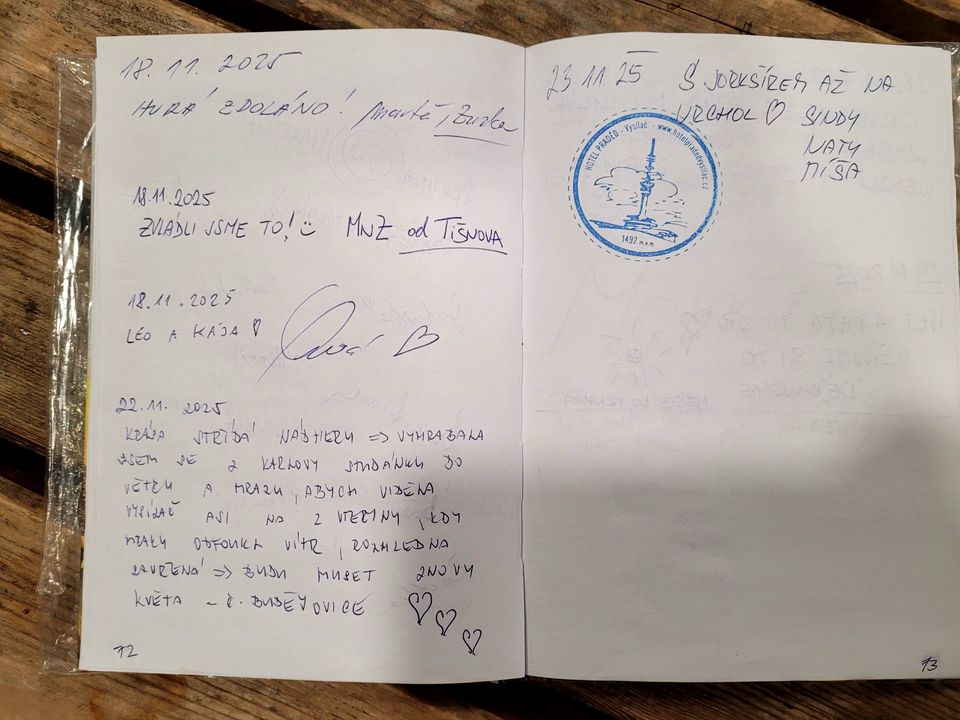 18. 11. 2025
HURÁ ZDOLÁNO!
18.11.2025
ZVLÁDLI JSME TO! MNZ od TIŠNOVA
18.11.2025
LEO A KÁJA
22.11. 2025
KRÁSA STŘÍDÁ NÁDHERU => VYHRABALA
JSEM SE Z KARLOVY STUDÁNKY DO
VĚTRU A MRAZU, ABYCH VIDĚLA
VYSÍLAČ ASI NA 2 VTEŘINY, KDY
MRAKY ODFOUKL VÍTR, ROZHLEDNA
ZAVŘENÁ => BUDU MUSET ZNOVU
KVĚTA - Č. BUDĚJOVICE
12
23.11.25 S JORKŠÍREM AŽ NA
VRCHOL SINDY
NATY
MÍŠA
HOTEL PRADĚD - Vysílač - www.hotelpradedvysilac.cz
1492 m.n.m
13